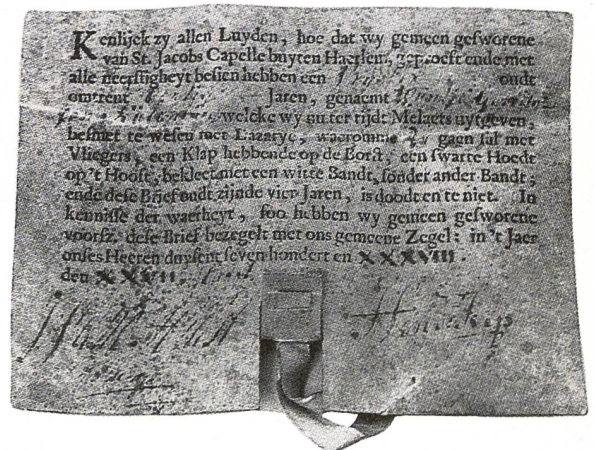 Kenlijck zy allen Luyden, hoe dat wy gemeen gesworene
van St. Jacobs Capelle buyten Haerlem, geproeft ende met
alle neerstigheyt besien hebben een oudt
omtrent Jaren, genaemt
welcke wy gu ter tijdt Melaets uytgeven,
besmet te wesen met Lazarye, waeromme gaen sal met
Vliegers, een Klap hebbende op de Borst, een swarte Hoedt
op 't Hooft, bekleet met een witte Bandt, sonder ander Bandt;
ende dese Brief oudt zijnde vier Jaren, is doodt en te niet. In
kennisse der waerheyt, soo hebben wy gemeen gesworene
voorsz. dese Brief bezegelt met ons gemeene Zegel: in 't Jaer
onses Heeren duysent seven hondert en XXXVIII.
den XXVII